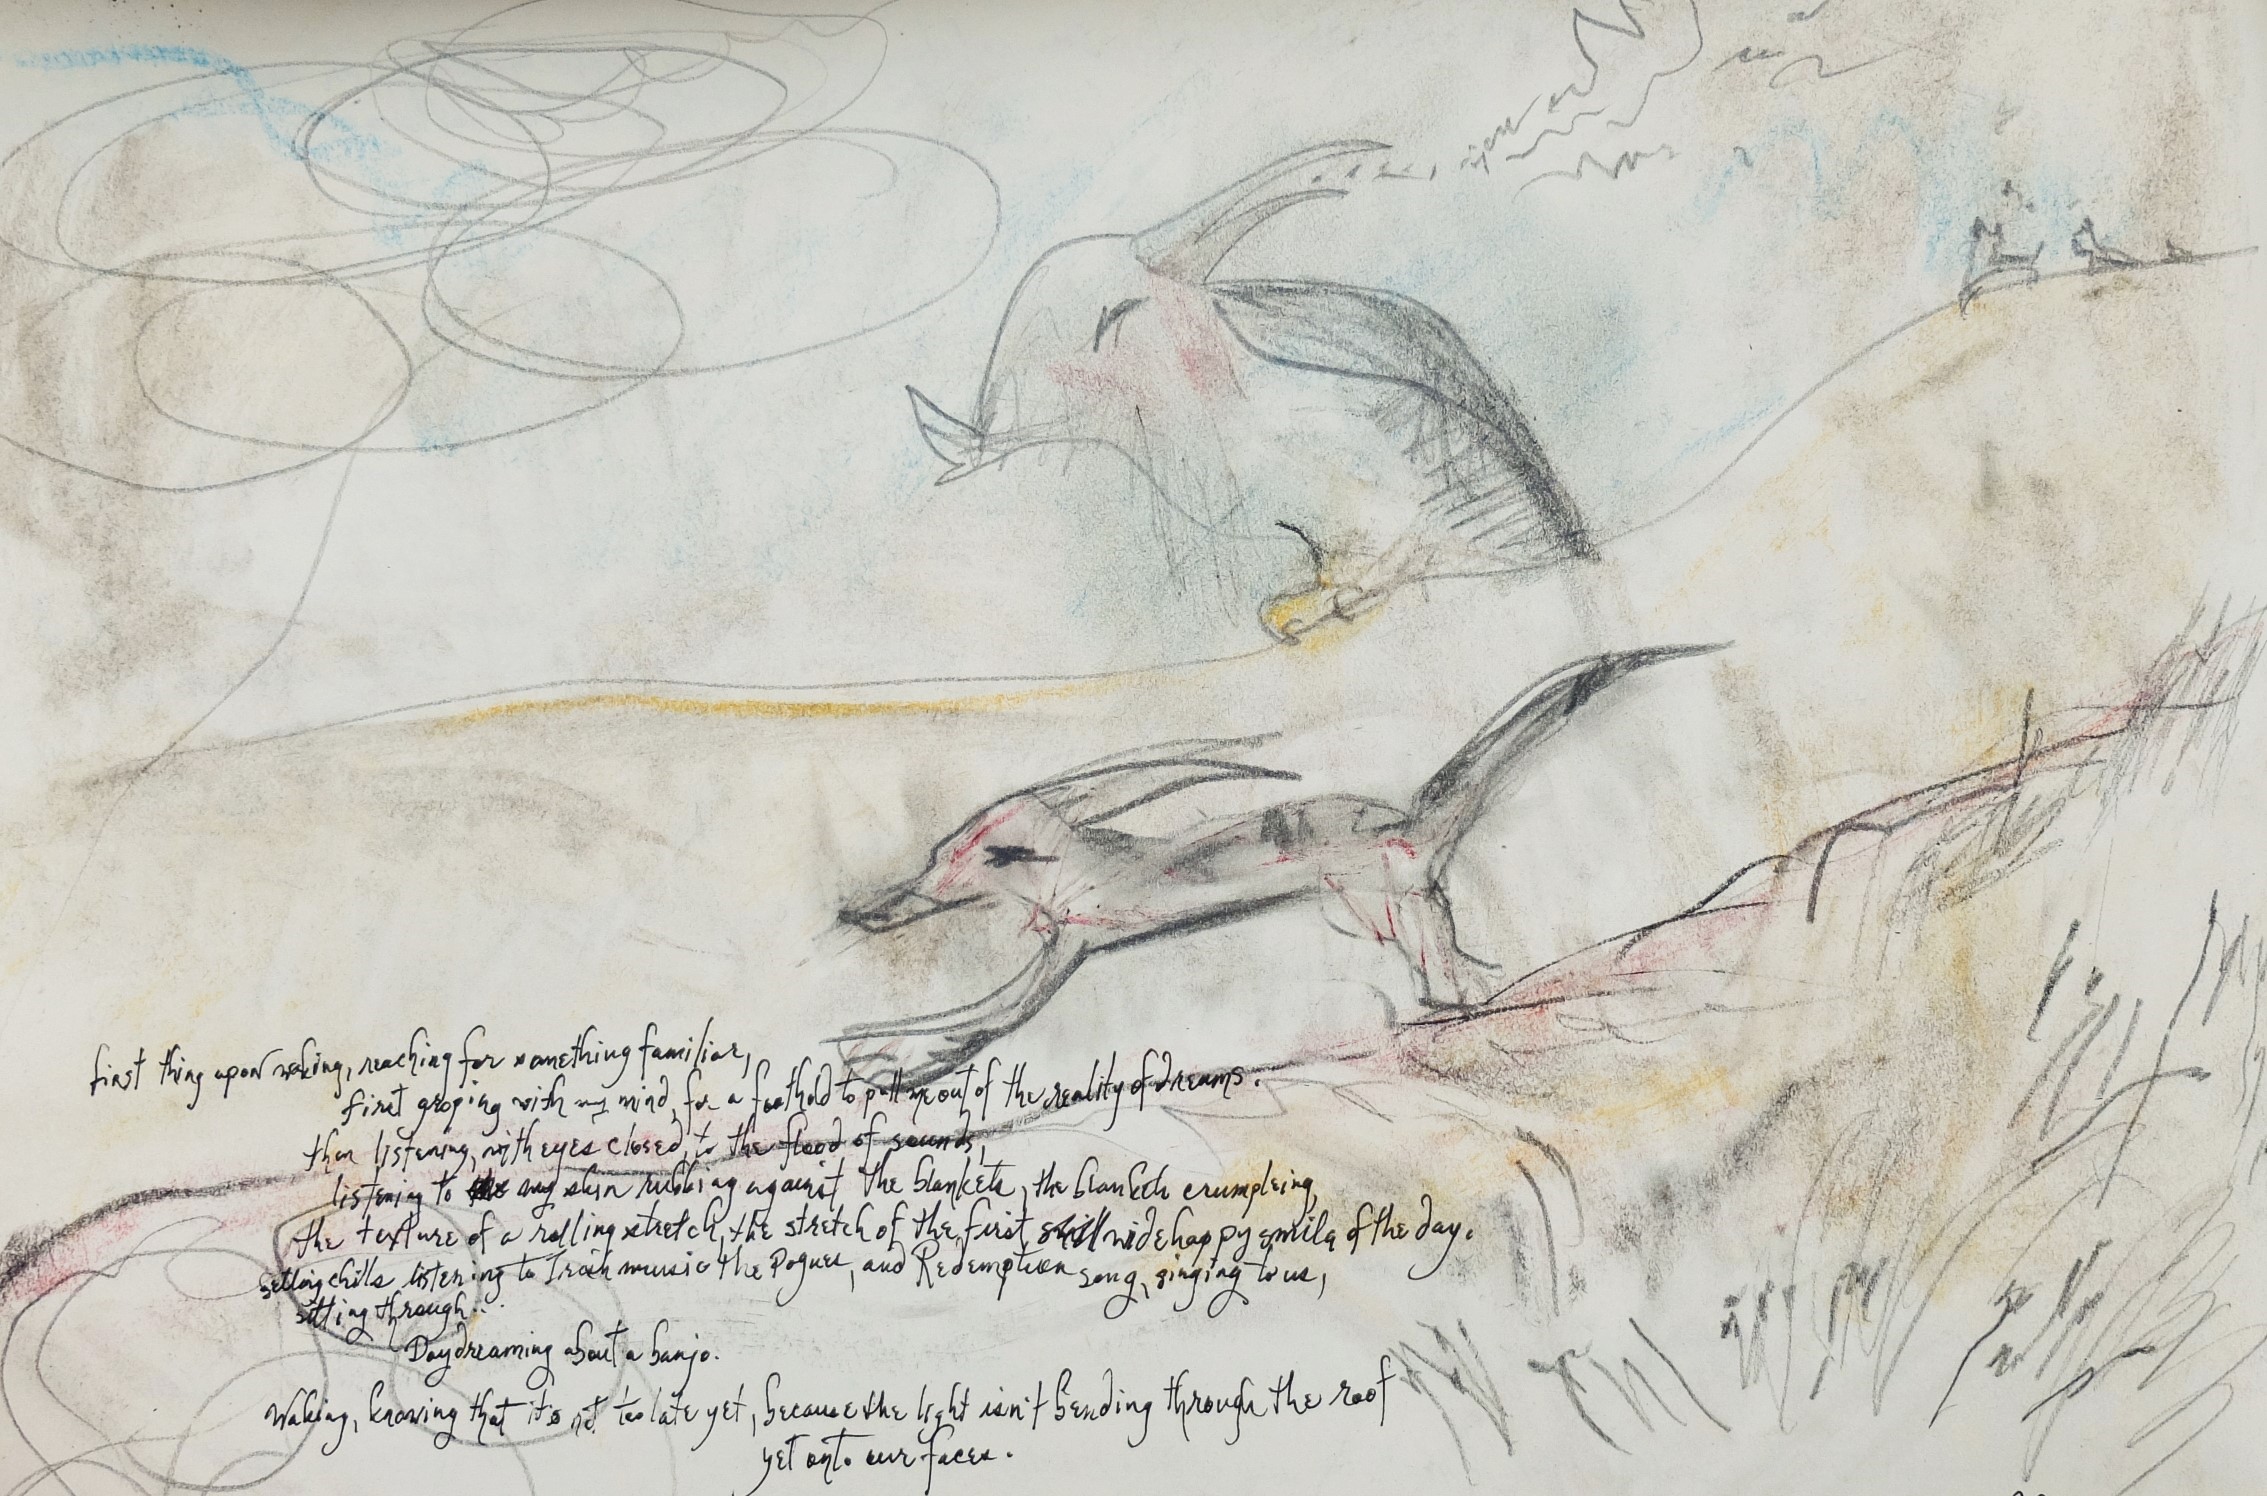 first thing upon waking, reaching for something familiar,
first groping with my mind, for a foothold to pull me out of the reality of dreams.
then listening, with eyes closed, to the flood of sounds,
listening to my skin rubbing against the blankets, the blankets crumpleing,
the texture of a rolling stretch, the stretch of the first wide happy smile of the day.
getting chills listening to Irish music the Pogues, and Redemption song, singing to us,
sitting through...
Daydreaming about a banjo.
Waking, knowing that it's not too late yet, because the light isn't bending through the roof
yet onto our faces.